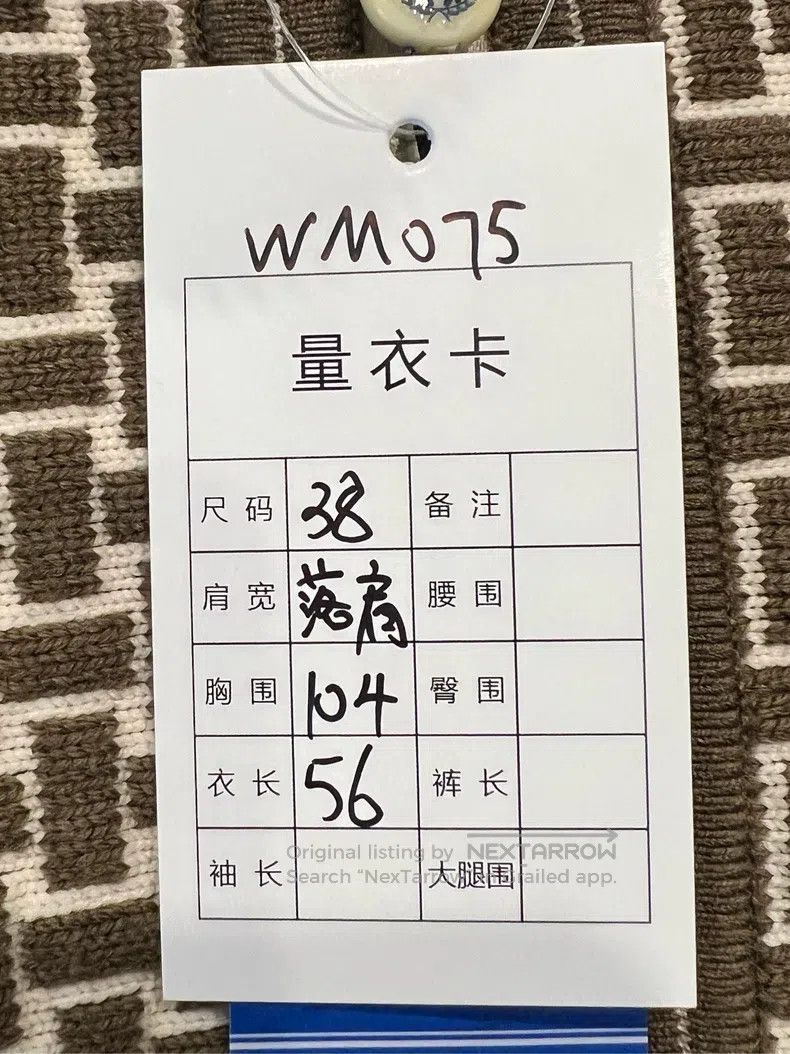 WM075
量衣卡
尺码 38 备注
肩宽 落肩 腰围
胸围 104 臀围
衣长 56 裤长
Original listing by NEXTARROW
袖长 大腿围
Search "NexTarrow" on Grailed app.